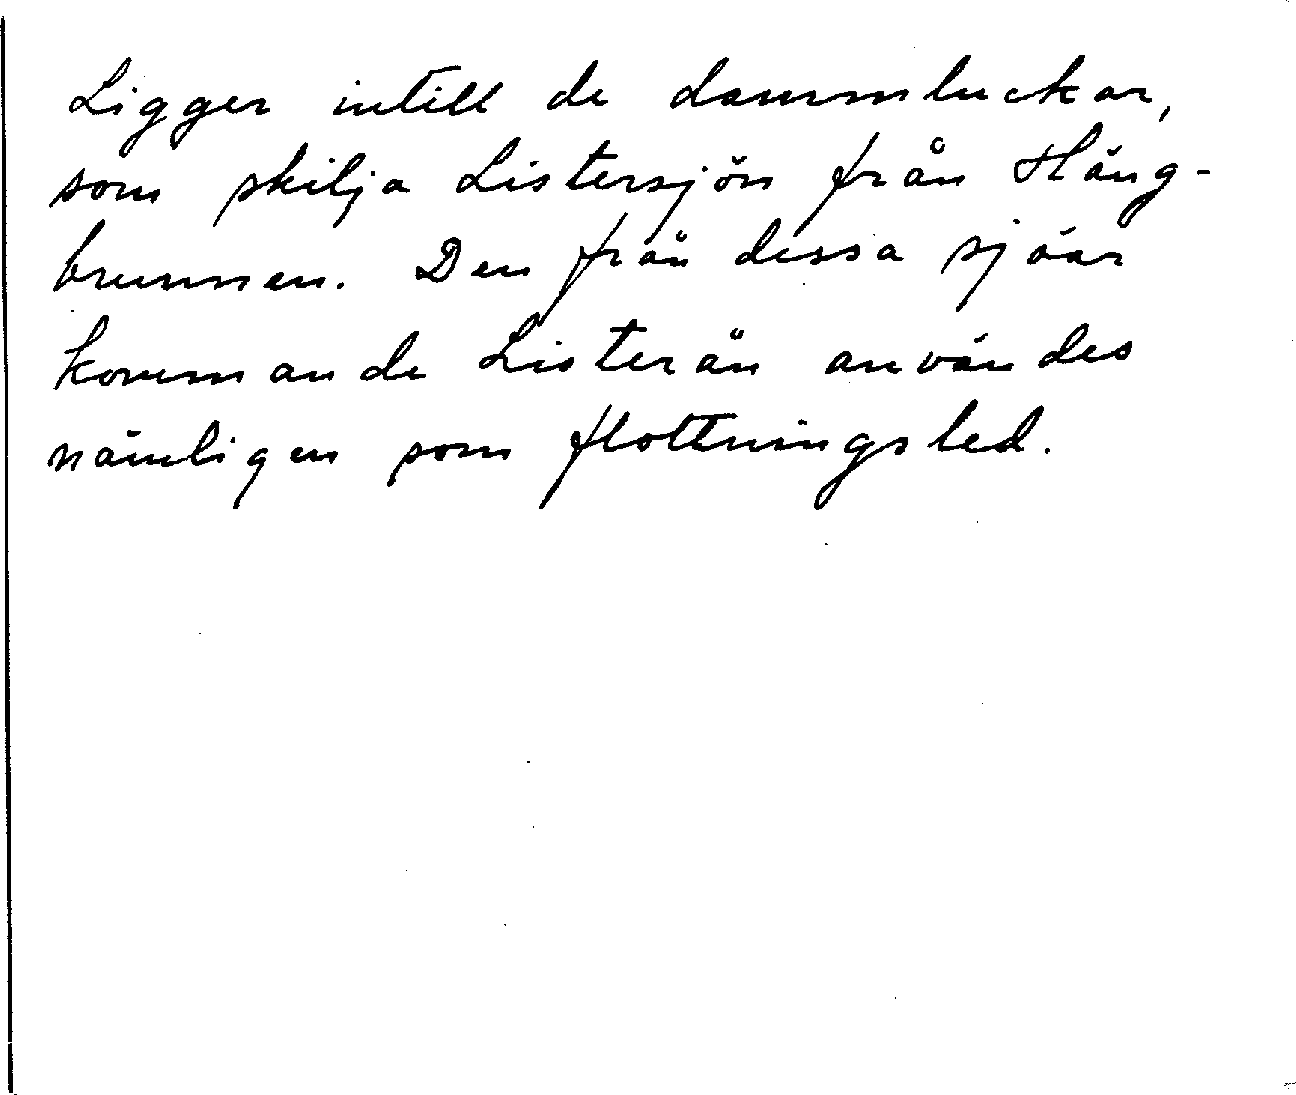 Ligger intill de dammluckar,
som skilja Listersjön från Häng-
brunnen. Den från dessa sjöar
kommande Listerån användes
nämligen som flottningsled.